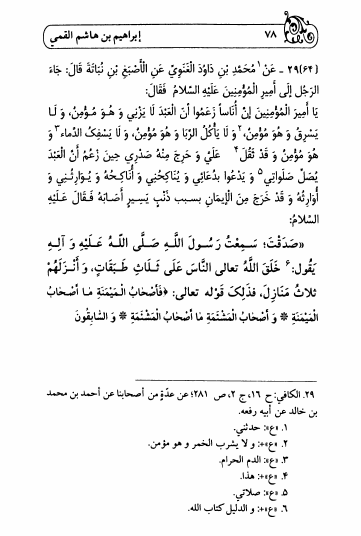 ٧٨ إبراهيم بن هاشم القمي
[٦٤]٢٩ ـ عَنْ ١ مُحَمَّدِ بْنِ دَاوُدَ الْغَنَوِيِّ عَنِ الْأَصْبَغِ بْنِ نُبَاتَةَ قَالَ: جَاءَ
الرَّجُلُ إِلَى أَمِيرِ الْمُؤْمِنِينَ عَلَيْهِ السَّلَامُ فَقَالَ:
يَا أَمِيرَ الْمُؤْمِنِينَ إِنَّ أُنَاساً زَعَمُوا أَنَّ الْعَبْدَ لَا يَزْنِي وَ هُوَ مُؤْمِنٌ، وَ لَا
يَسْرِقُ وَ هُوَ مُؤْمِنٌ، ٢ وَ لَا يَأْكُلُ الرِّبَا وَ هُوَ مُؤْمِنٌ، وَ لَا يَسْفِكُ الدِّمَاءَ ٣ وَ
هُوَ مُؤْمِنٌ وَ قَدْ ثَقُلَ ٤ عَلَيَّ وَ حَرِجَ مِنْهُ صَدْرِي حِينَ زَعَمَ أَنَّ الْعَبْدَ
يُصَلِّ صَلَوَاتِي ٥ وَ يَدْعُوا بِدُعَائِي وَ يُنَاكِحُنِي وَ أُنَاكِحُهُ وَ يُوَارِثُنِي وَ
أُوَارِثُهُ وَ قَدْ خَرَجَ مِنَ الْإِيمَانِ بسبب ذَنْبٍ يَسِيرٍ أَصَابَهُ فَقَالَ عَلَيْهِ
السَّلَامُ:
«صَدَقْتَ؛ سَمِعْتُ رَسُولَ اللَّهِ صَلَّى اللَّهُ عَلَيْهِ وَ آلِهِ
يَقُولُ: ٦ خَلَقَ اللَّهُ تعالى النَّاسَ عَلَى ثَلَاثِ طَبَقَاتٍ، وَ أَنْزَلَهُمْ
ثلاثَ مَنَازِلَ، فَذَلِكَ قَوْله تعالى: ﴿فَأَصْحَابُ الْمَيْمَنَةِ مَا أَصْحَابُ
الْمَيْمَنَةِ * وَ أَصْحَابُ الْمَشْئَمَةِ مَا أَصْحَابُ الْمَشْئَمَةِ * وَ السَّابِقُونَ
٢٩. الكافي: ح ١٦، ج ٢، ص ٢٨١؛ عن عدّة من أصحابنا عن أحمد بن محمد
بن خالد عن أبيه رفعه.
١. «ع»: حدثني.
٢. «ع»+: و لا يشرب الخمر و هو مؤمن.
٣. «ع»: الدم الحرام.
٤. «ع»+: هذا.
٥. «ع»: صلاتي.
٦. «ع»+: و الدليل كتاب الله.